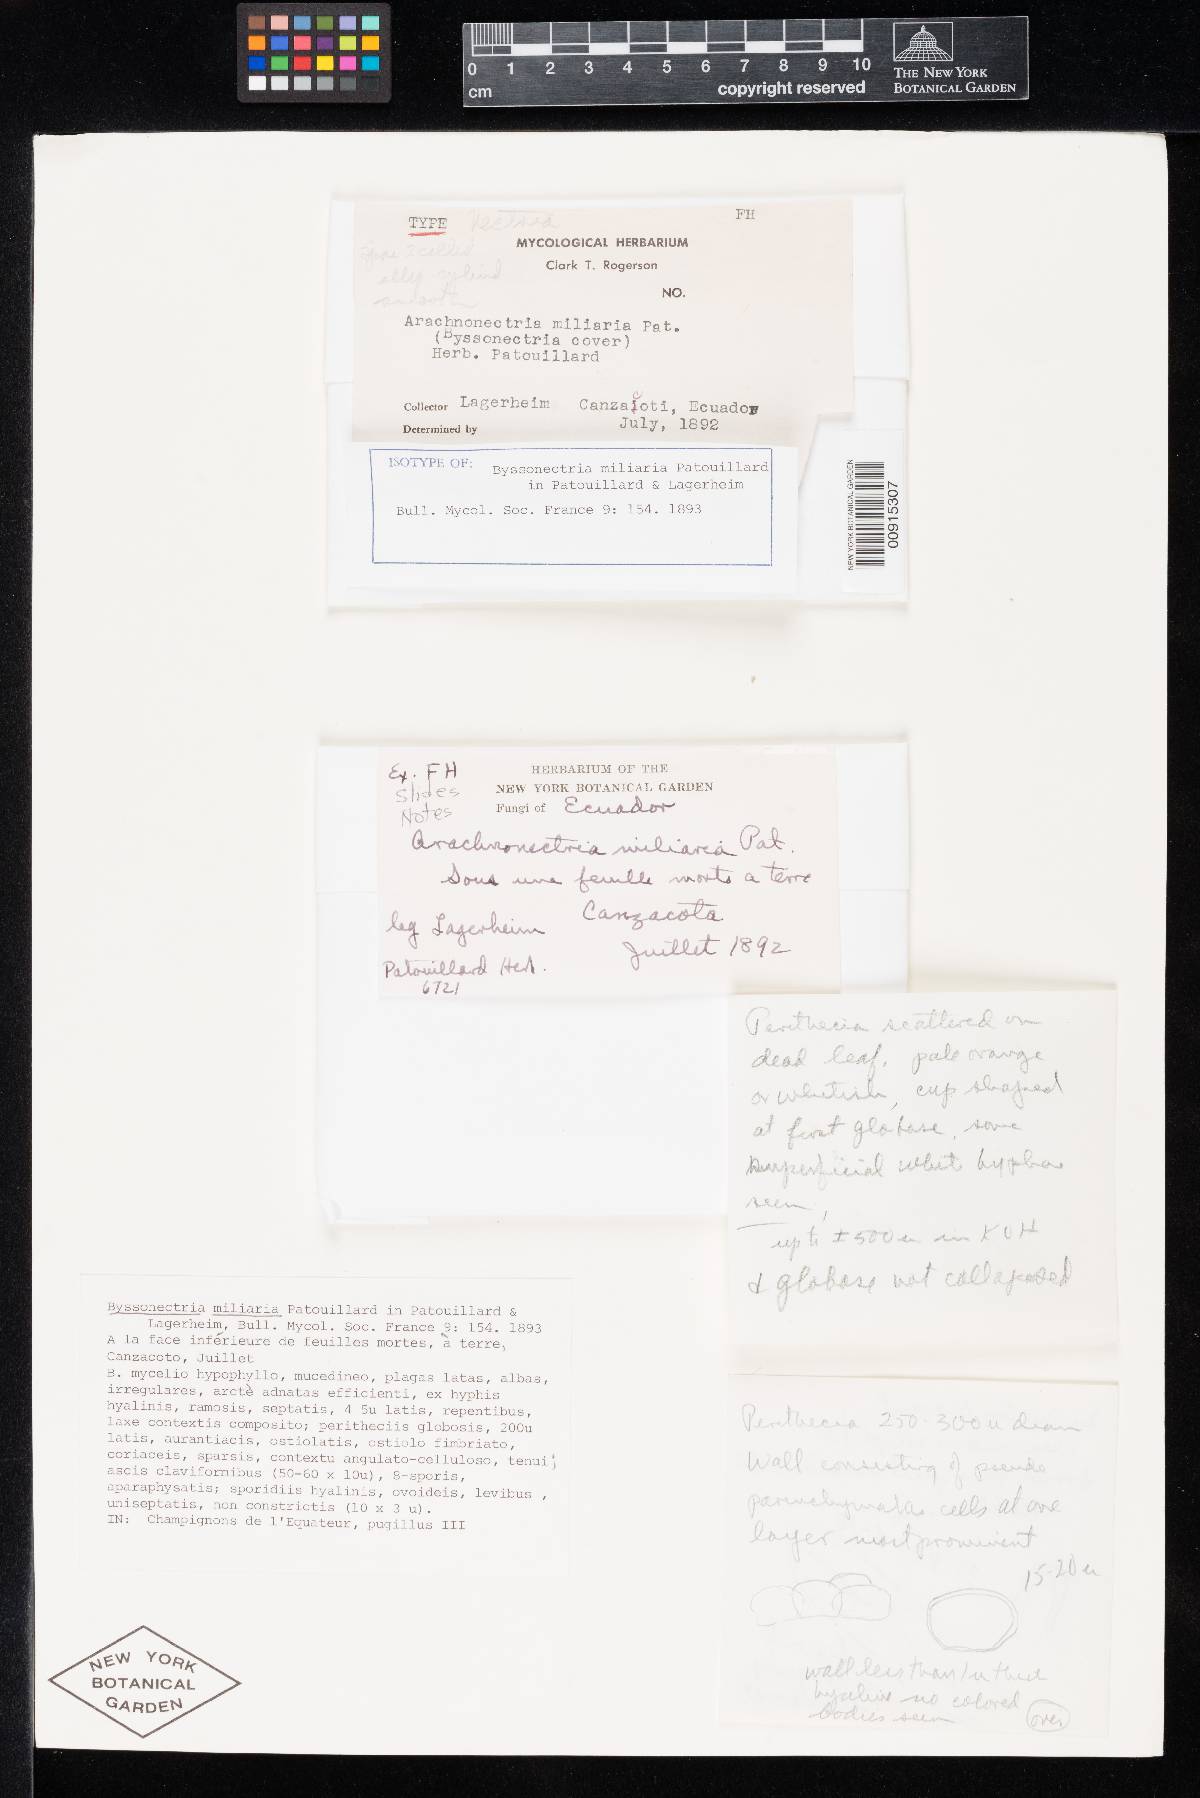 0 1 2 3 4 5 6 7 8 9 10
cm
copyright reserved
THE NEW YORK
BOTANICAL GARDEN
TYPE Nectria
FH
MYCOLOGICAL HERBARIUM
Clark T. Rogerson
NO.
Arachnonectria miliaria Pat.
(Byssonectria cover)
Herb. Patouillard
Collector Lagerheim Canzacoti, Ecuador
July, 1892
Determined by
ISOTYPE OF: Byssonectria miliaria Patouillard
in Patouillard & Lagerheim
Bull. Mycol. Soc. France 9: 154. 1893
NEW YORK BOTANICAL GARDEN
00915307
Ex. FH
Slides
Notes
HERBARIUM OF THE
NEW YORK BOTANICAL GARDEN
Fungi of Ecuador
Arachnonectria miliaria Pat.
Sous une feuille morte a terre
Canzacota
leg Lagerheim
Juillet 1892
Patouillard Herb.
6721
Perithecia scattered on
dead leaf, pale orange
or whitish, cup shaped
at first globose, some
superficial white hyphae
seen,
up to ± 500 u in KOH
& globose not collapsed
Byssonectria miliaria Patouillard in Patouillard &
Lagerheim, Bull. Mycol. Soc. France 9: 154. 1893
A la face inférieure de feuilles mortes, à terre,
Canzacoto, Juillet
B. mycelio hypophyllo, mucedineo, plagas latas, albas,
irregulares, arctè adnatas efficienti, ex hyphis
hyalinis, ramosis, septatis, 4 5u latis, repentibus,
laxe contextis composito; peritheciis globosis, 200u
latis, aurantiacis, ostiolatis, ostiolo fimbriato,
coriaceis, sparsis, contextu angulato-celluloso, tenui;
ascis claviformibus (50-60 x 10u), 8-sporis,
aparaphysatis; sporidiis hyalinis, ovoideis, levibus,
uniseptatis, non constrictis (10 x 3 u).
IN: Champignons de l'Equateur, pugillus III
Perithecia 250-300 u diam
Wall consisting of pseudo
parenchymata cells at one
layer most prominent
15-20 u
wall less than 1 u thick
hyaline no colored
bodies seen
over
NEW YORK
BOTANICAL
GARDEN